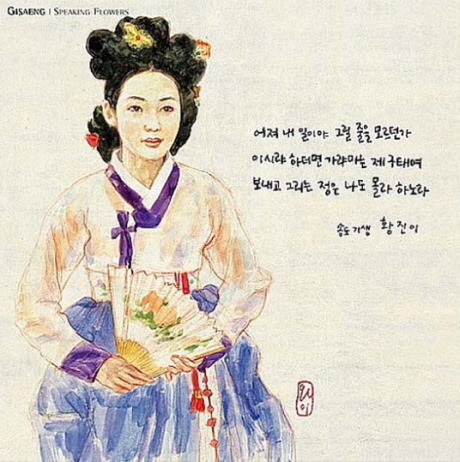 GISAENG | SPEAKING FLOWERS
어져 내 일이야 그릴 줄을 모르던가
이시랴 하더면 가랴마는 제 구태여
보내고 그리는 정은 나도 몰라 하노라
송도 기생 황진이